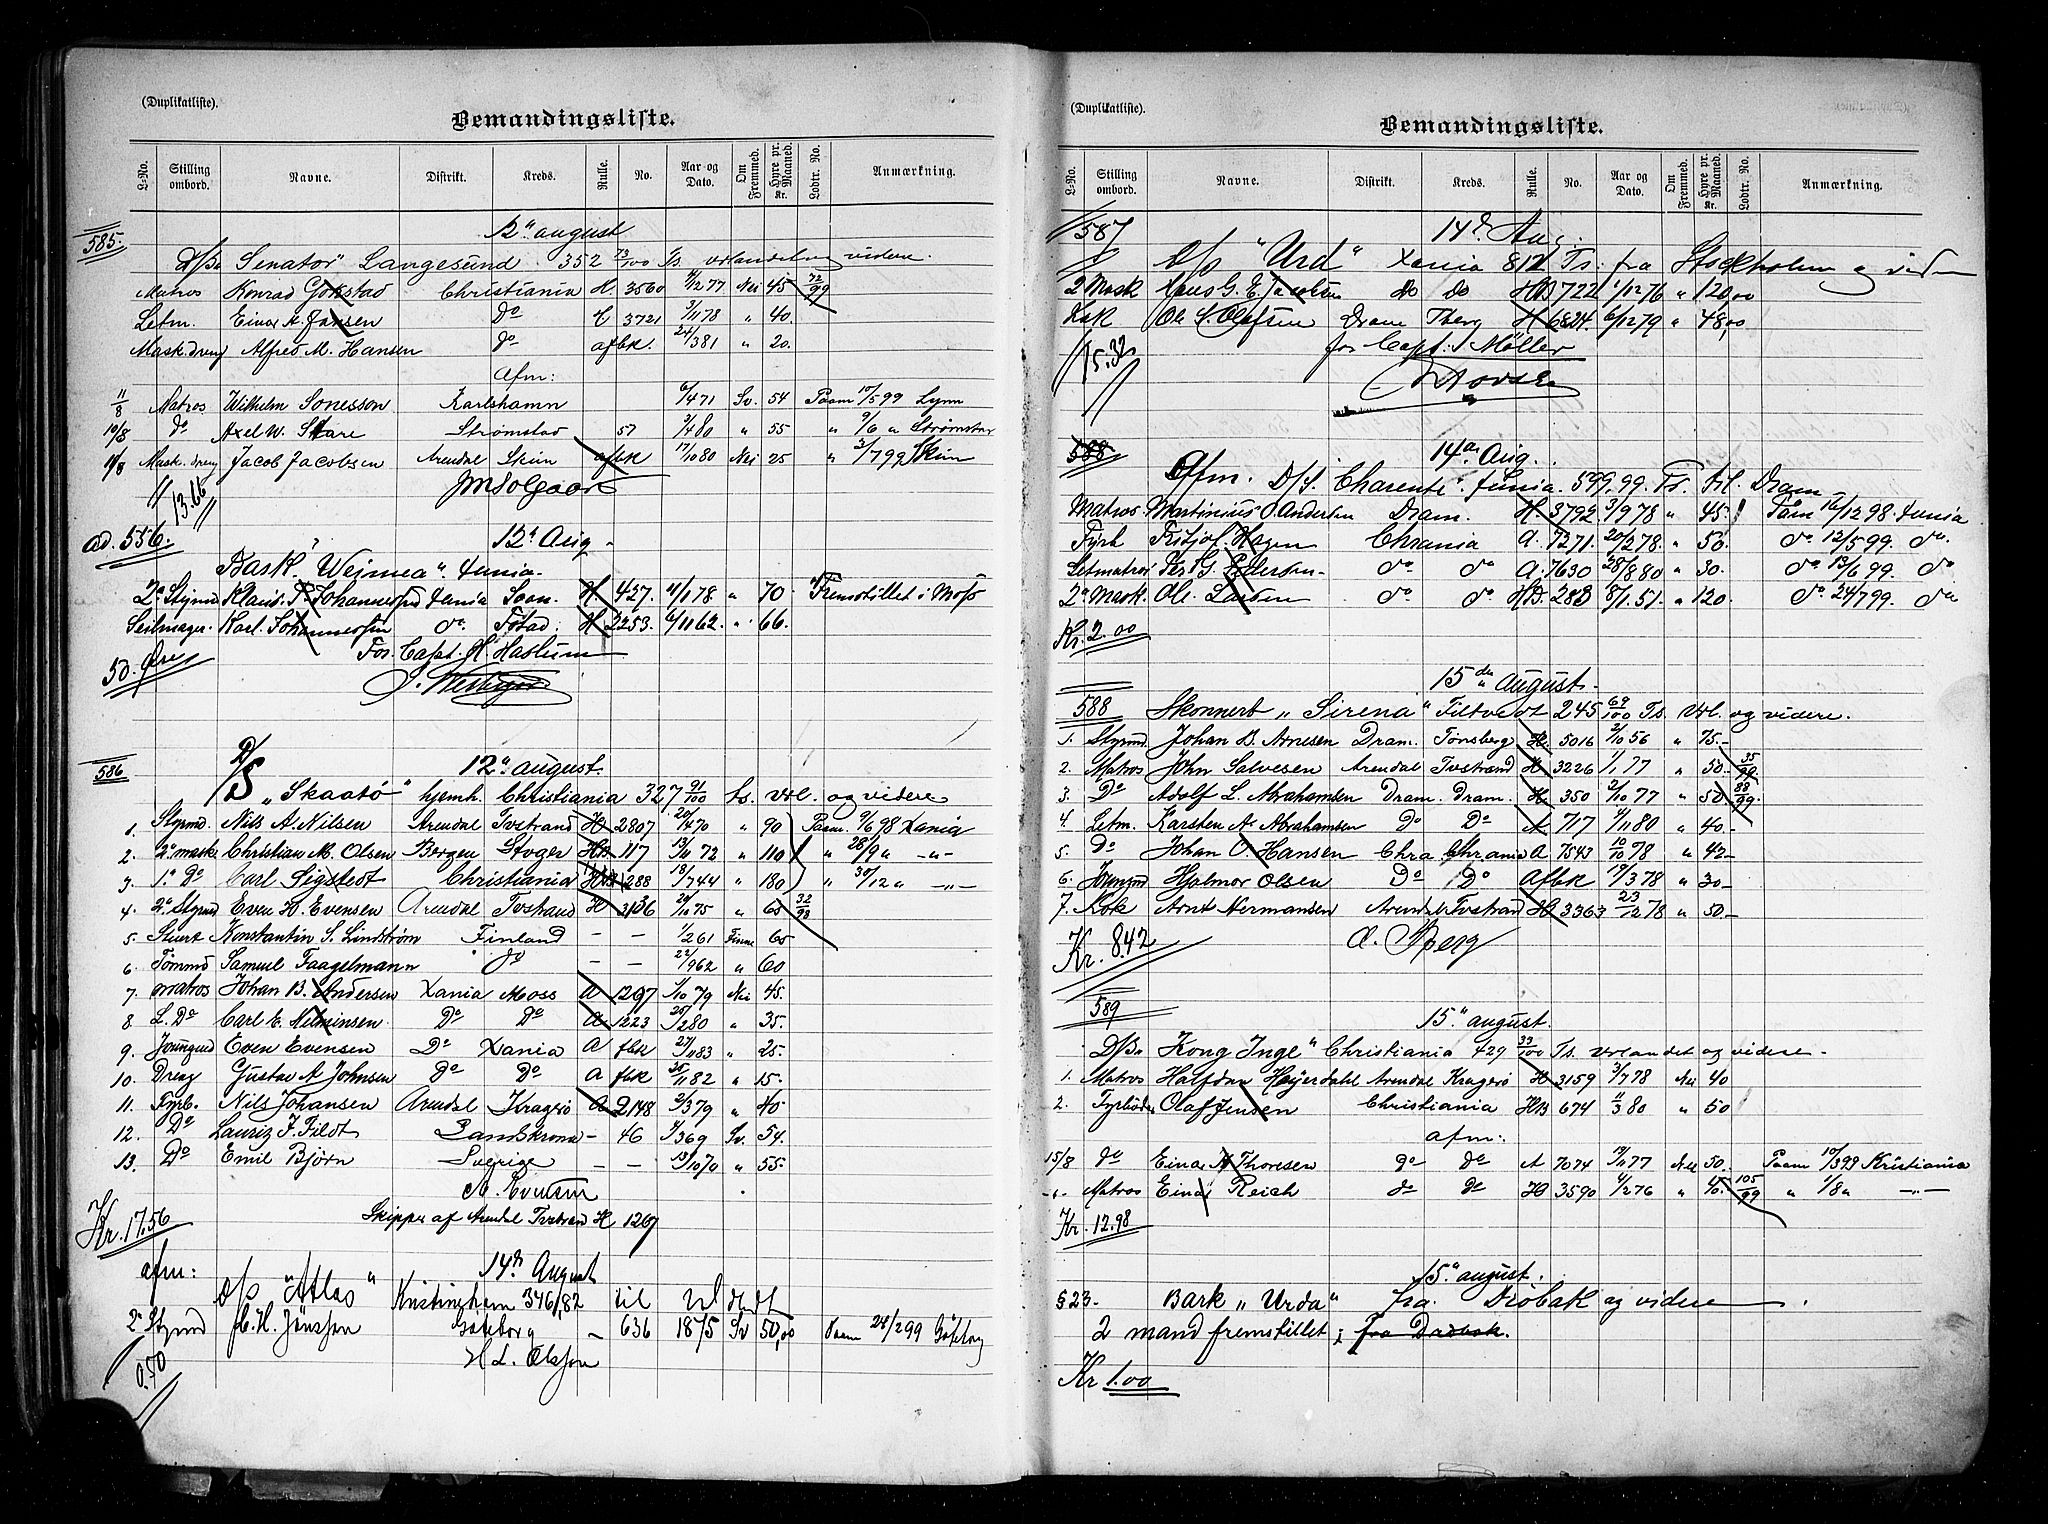 (Duplikatliste).
Bemandingsliste.
L-No. Stilling ombord. Navne. Distrikt. Kreds. Rulle. No. Aar og Dato. Om Fremmed. Hyre pr. Maaned. Kr. Lodtr. No. Anmærkning.
585. 12te august
D/Sk Senator" Langesund 352 73/100 Ts. udlandet og videre.
Matros Konrad Gokstad Christiania H. 3560 4/12 77 Nei 45 72/99
Letm. Einar A. Jansen Do 3721 3/11 78 " 40.
Mask.dreng Alfred M. Hansen do afbk. 24/3 81 " 20.
Afm:
11/8 Matros Wilhelm Sonesson Karlshamn 6/4 71 Sv. 54 Paam 10/5 99 Lynn
10/8 do Axel W. Skare Strømstad 57 3/4 80 " 55 " 9/6 "
11/8 Mask.dreng Jacob Jacobsen Arendal Skien afbk 17/10 80 Nei 25 " 3/7 99 Skien
13.66
ad. 556. 12te Aug
Bark "
2n Styrmd Klaus. Johannessen Xania Soon. H 427. 11/1 78 " 70 Fremstillet i Moss
Seilmager. Karl. Johannessen do. H 2253. 6/11 62. " 66.
For Capt. H. Haslum
50. Øre
586 12te august.
D/S "Skaatø" hjemh. Christiania 327 91/100 ts. Utl. og videre
1. Styrmd. Nils A. Nilsen Arendal Tvestrand H 2807 20/4 70 " 90 Paam. 9/6 98 Xania
2. 2n mask Christian M. Olsen Bergen HB 117 13/11 72 " 110 " 28/9 " -"-
3. 1n Do Carl Sigstedt Christiania HB 1288 18/7 44 " 180 " 30/12 " -"-
4. 2n Styrmd Even H. Evensen Arendal Tvestrand H 3136 24/10 75 " 65 32/98
5. Stuert Konstantin S. Lindstrøm Finland - - 1/2 61 Finne 65
6. Tømmd Samuel Faagelmann do - - 22/9 62 " 60
7. matros Johan B. Andersen Xania Moss A 1297 1/10 79 Nei 45.
8. L. Do Carl E. Do Do A 1223 25/2 80 " 35.
9. Joungmd Even Evensen Do Xania A fbk 27/11 83 " 25.
10. Dreng Gustav A Johnsen do Do A fbk 25/11 82 " 15.
11. Fyrb. Nils Johansen Arendal Kragerø A 2148 2/3 79 " 40
12. Do Lauriz F. Fildt Landskrona - 46 4/3 69 Sv. 54.
13. Do Emil Bjørn Sverige - - 13/10 70 " 55.
Skipper af Arendal Tvestrand H 1267
Kr. 17.56
afm: 14de August
D/S "Atlas" Kristinehamn 346,82 til
2n Styrmd Jönsson Göteborg - 636 1875 Sv 50,00 Paam 28/2 99 Göteborg
H L. Olsson
0.50
(Duplikatliste).
Bemandingsliste.
L-No. Stilling ombord. Navne. Distrikt. Kreds. Rulle. No. Aar og Dato. Om Fremmed. Hyre pr. Maaned. Kr. Lodtr. No. Anmærkning.
587 14de Aug.
D/S "Urd" Xania 812 Ts. fra Stockholm og videre
2 Mask Hans G. E. Jacobsen do do HB 722 1/12 76 " 120,00
Kok Ole Olafsen Dram Tberg H 6824 6/12 79 " 48,00
for Capt. J Møller
15.32
588 14de Aug.
Afm. D/S. "Charente". Xania. 599,99. Ts. til. Dram
Matros. Martinius Andersen Dram. H. 3792 3/9 78 " 45. Paam 16/12 98. Xania
Fyrb Fritjof Hagen Chrania A. 7271. 20/2 78. " 50. do 12/5 99. do.
Letmatros Pedersen do do A. 7630 28/8 80 " 30. do 13/6 99. do.
2n Mask. Ole Larsen do do. HB. 283 8/1 51. " 120. do 24/7 99. do
Kr. 2.00
15de august.
588 Skonnert "Sirena" Filtvedt 245 69/100 Ts. Utl. og videre.
1. Styrmd. Johan B. Arnesen Dram. Tønsberg H. 5016 2/10 56 " 75.-
2. Matros John Salvesen Arendal Tvstrand H 3226 1/1 77 " 50. 35/99
3. Do Adolf L. Abrahamsen Dram. Dram. H. 350 2/10 77 " 50 88/99.
4. Letm. Karsten A. Abrahamsen Do Do A 717 1/11 80 " 40.-
5. Do Johan O. Hansen Chra Chrania A 7543 10/10 78 " 42-
6. Joungmd Hjalmar Olsen Do Do Afbk 17/3 78 " 30-
7. Kok Arnt Hermansen Arendal Tvstrand H 3363 23/12 78 " 50-
Kr. 8.42
589
15de august.
D/Sk Kong Inge" Christiania 429 33/100 Ts. udlandet og videre.
1. Matros Halfdan Heyerdahl Arendal Kragerø H 3159 3/7 78 Nei 40
2. Fyrbøder Olaf Jensen Christiania HB 674 11/3 80 " 50
afm:
15/8 do Einar A Thoresen do do A 7074 19/11 77 Nei 50. Paam 10/3 99 Kristiania
-"- Matros Einar Reich do do H 3590 4/2 76 " 40. 105/99 " 1/8 " -"-
Kr. 12.98
15de august.
523. Bark "Urda" fra. Drøbak og videre.
2 mand fremstillet i fra Drøbak.
Kr 1.00